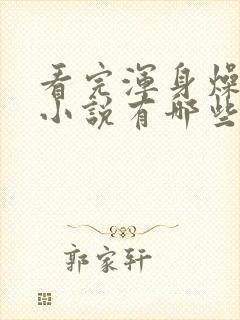 看完浑身燥
小说有哪些
郭家轩